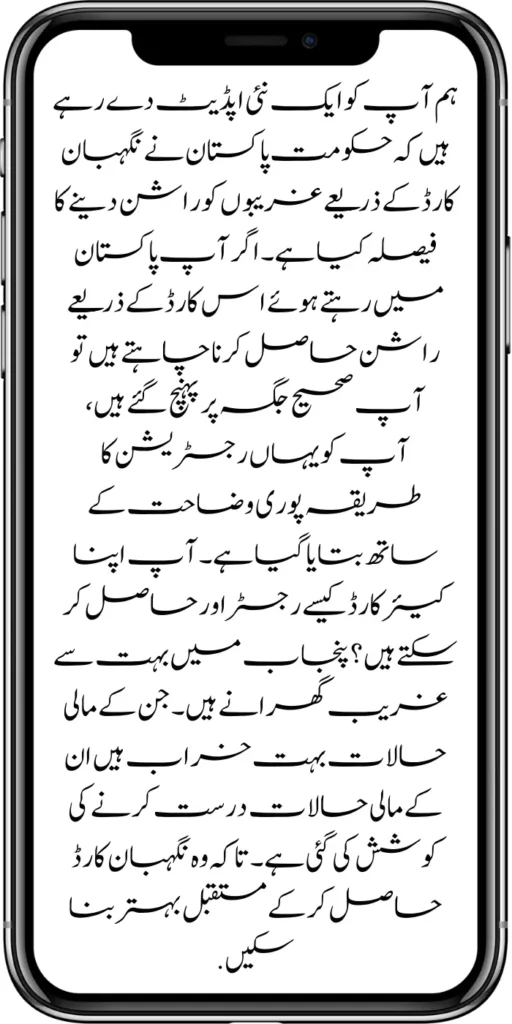 ہم آپ کو ایک نئی اپڈیٹ دے رہے
ہیں کہ حکومت پاکستان نے نگہبان
کارڈ کے ذریعے غریبوں کو راشن دینے کا
فیصلہ کیا ہے۔ اگر آپ پاکستان
میں رہتے ہوئے اس کارڈ کے ذریعے
راشن حاصل کرنا چاہتے ہیں تو
آپ صحیح جگہ پر پہنچ گئے ہیں،
آپ کو یہاں رجسٹریشن کا
طریقہ پوری وضاحت کے
ساتھ بتایا گیا ہے۔ آپ اپنا
کیئر کارڈ کیسے رجسٹر اور حاصل کر
سکتے ہیں؟ پنجاب میں بہت سے
غریب گھرانے ہیں۔ جن کے مالی
حالات بہت خراب ہیں ان
کے مالی حالات درست کرنے کی
کوشش کی گئی ہے۔ تاکہ وہ نگہبان کارڈ
حاصل کر کے مستقبل بہتر بنا
سکیں.